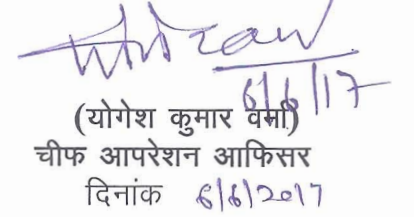 6/6/17
(योगेश कुमार वर्मा)
चीफ आपरेशन आफिसर
दिनांक 6/6/2017